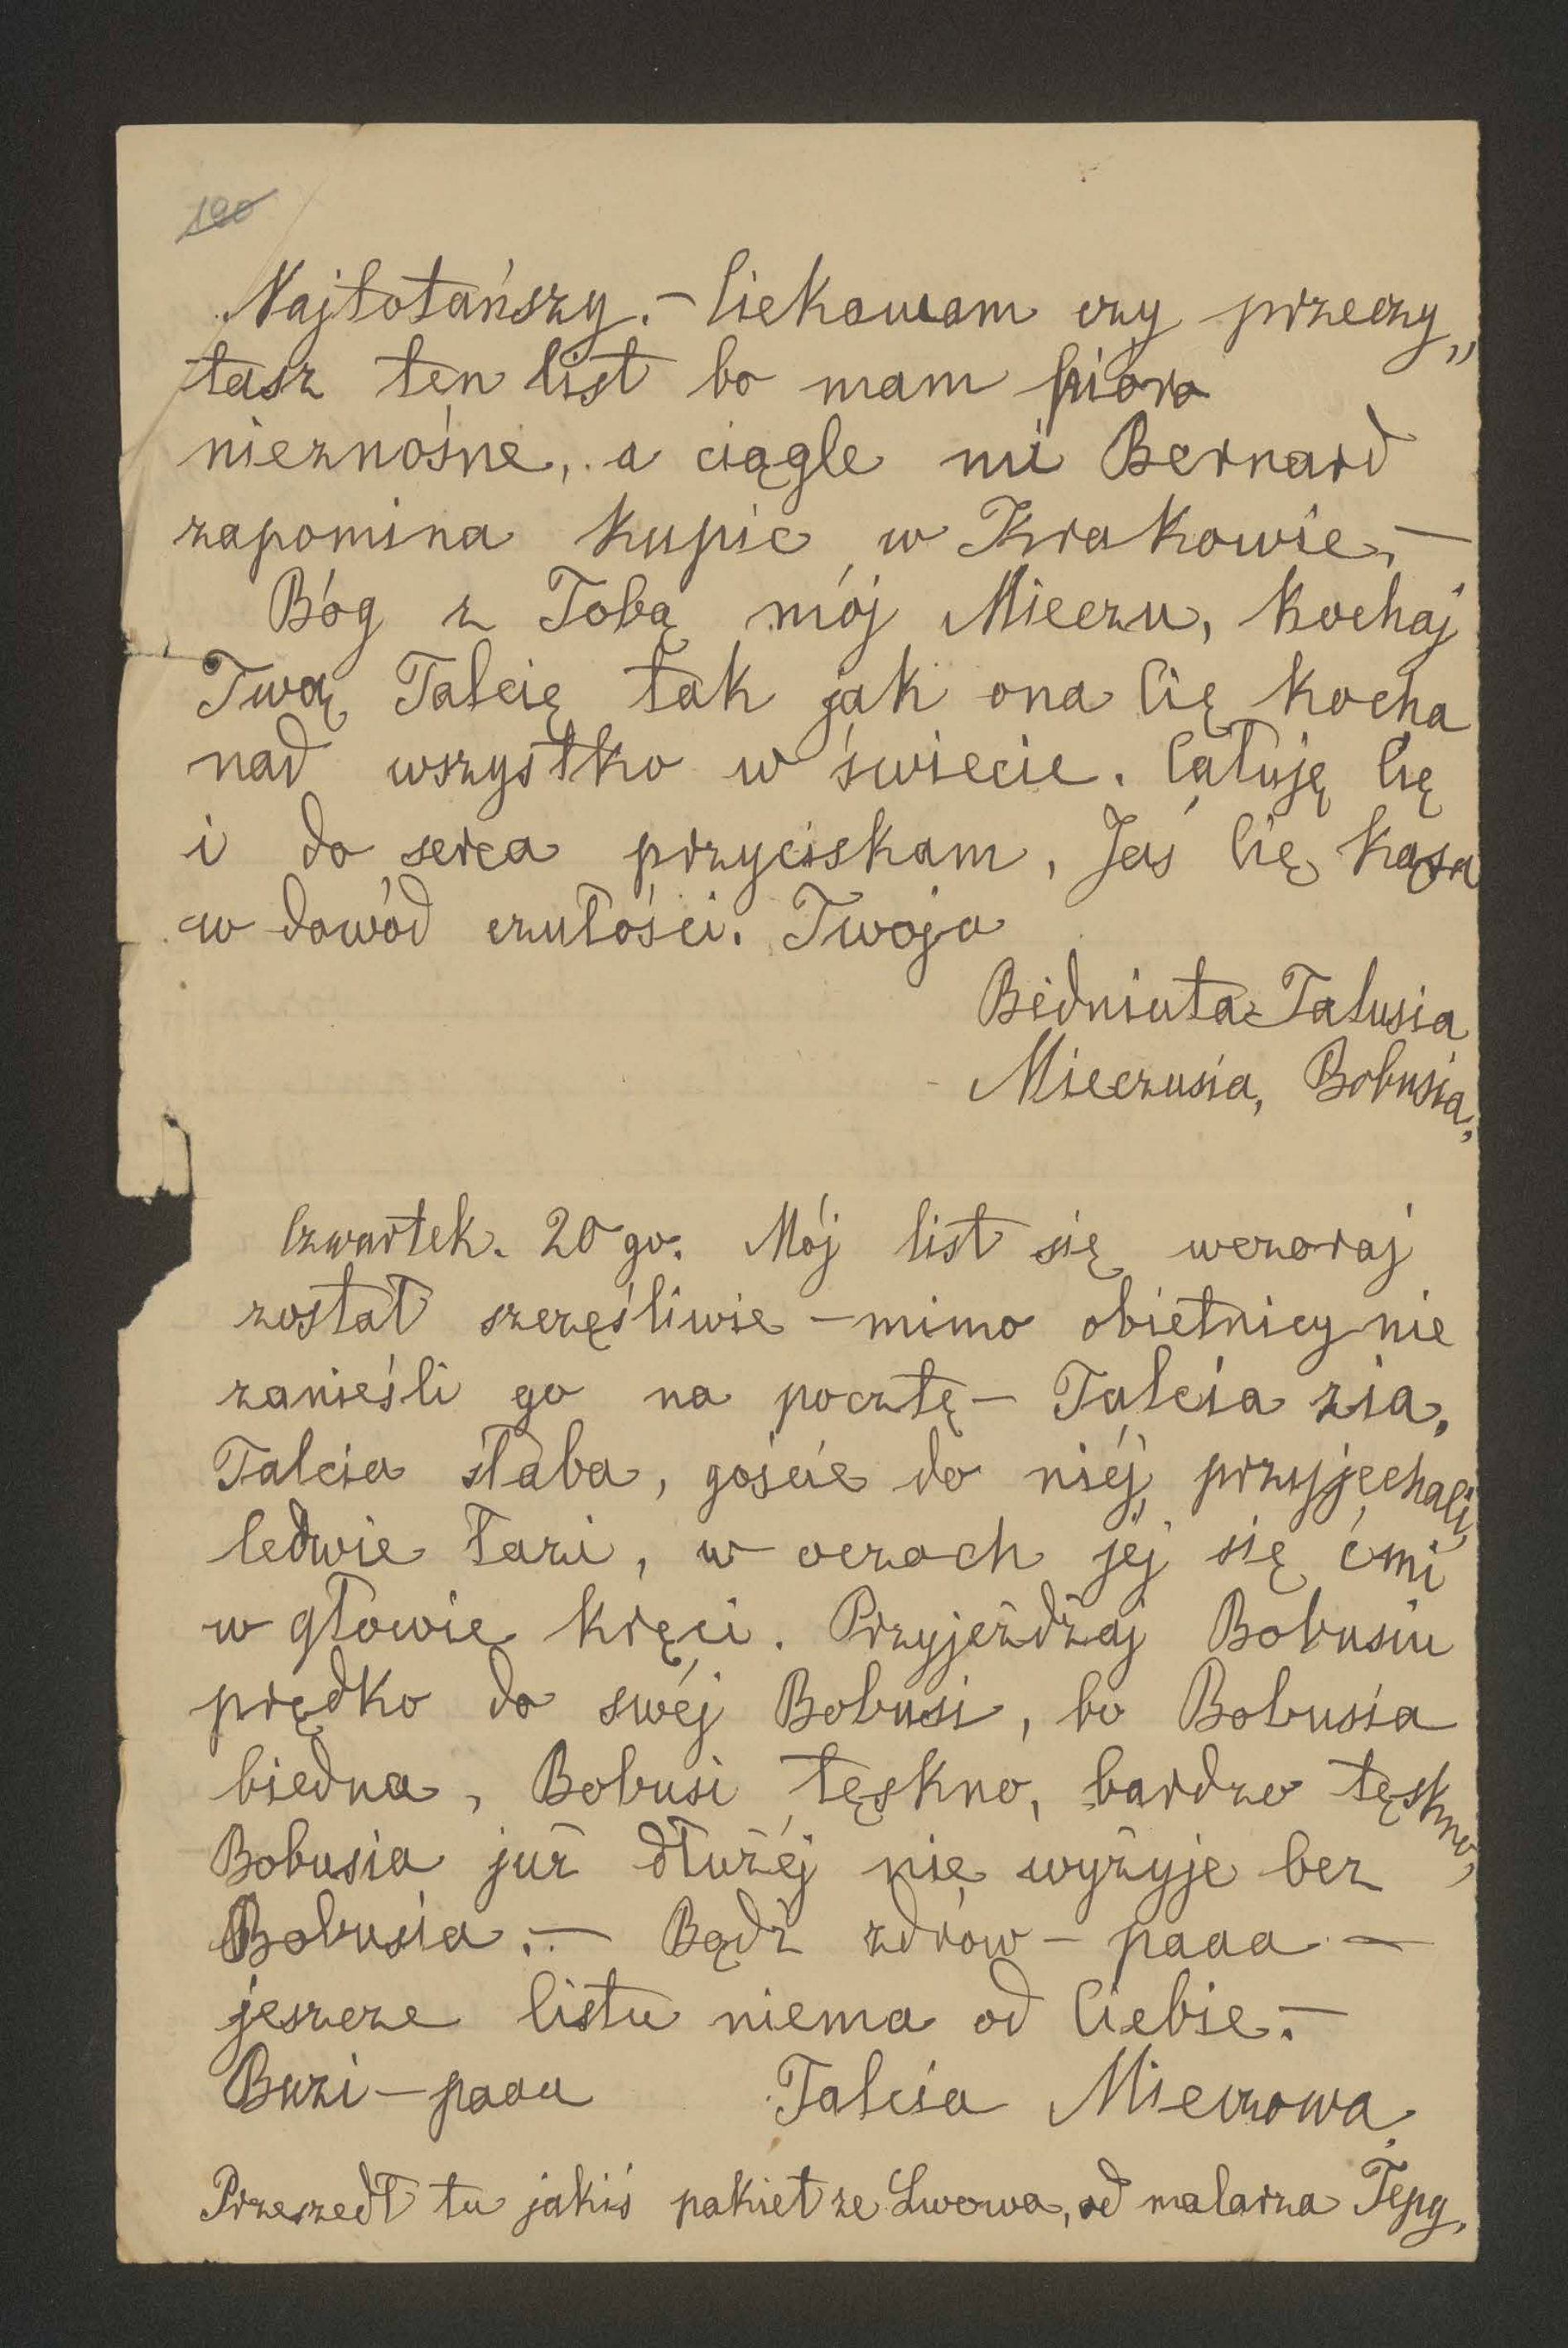 190
Najtotańszy. – Ciekawam czy przeczy„
tasz ten list bo mam pióro
nieznośne, a ciągle mi Bernard
zapomina kupić w Krakowie. –
Bóg z Tobą mój Mieczu, kochaj
Twą Talcię tak jak ona Cię kocha
nad wszystko w świecie. Całuję Cię
i do serca przyciskam, Jaś Cię kąsa
w dowód czułości. Twoja
Bidniuta Talusia
Mieczusia, Bobusia,
Czwartek. 20go. Mój list się wczoraj
został szczęśliwie – mimo obietnicy nie
zanieśli go na pocztę – Talcia zia,
Talcia słaba, goście do niéj przyjechali,
ledwie łazi, w oczach jéj się ćmi
w głowie kręci. Przyjeżdżaj Bobusiu
prędko do swéj Bobusi, bo Bobusia
biedna, Bobusi tęskno, bardzo tęskno,
Bobusia już dłużéj nie wyżyje bez
Bobusia. – Bądź zdrów – paaa –
jeszcze listu niema od Ciebie. –
Buzi – paaa Talcia Mieczowa,
Przeszedł tu jakiś pakiet ze Lwowa, od malarza Tepy,